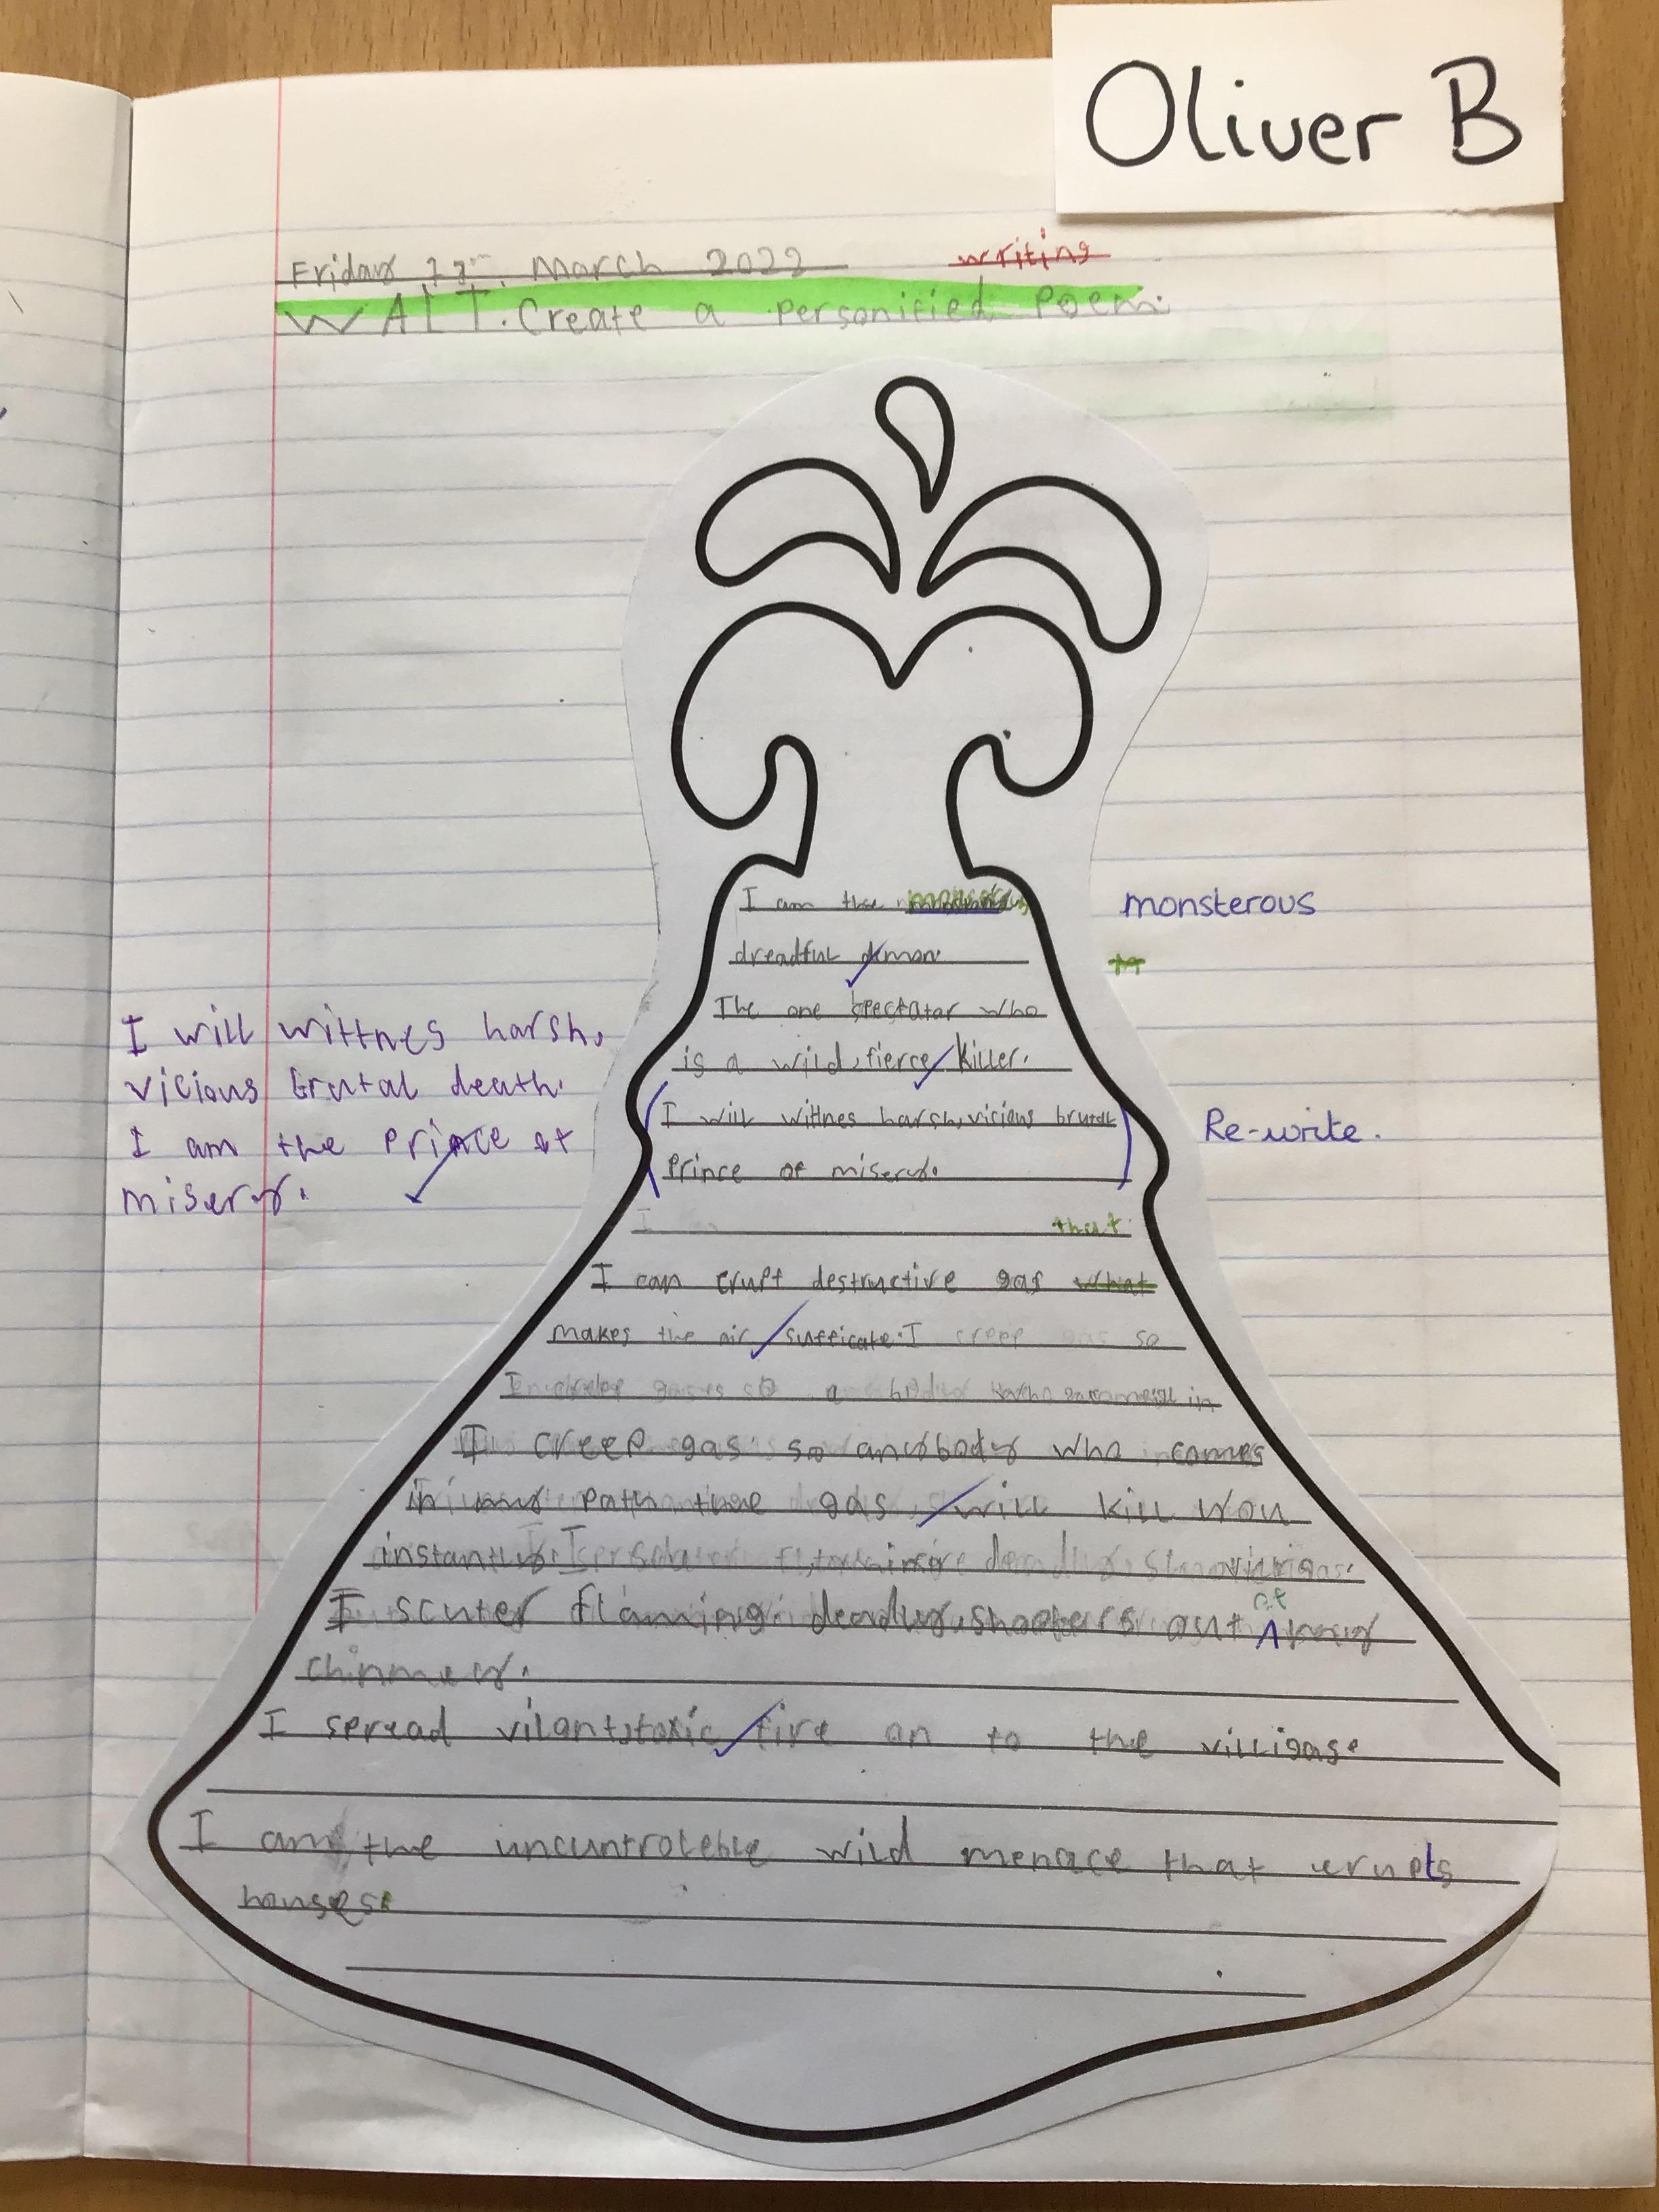 Oliver B
Friday March 2022 writing
WALT. Create a personified poem.
I am the
monsterous
dreadful demon.
The one spectator who
is a wild, fierce killer.
I will wittnes harsh, vicious brutal
prince of misery.
Re-write.
I will wittnes harsh,
vicious brutal death.
I am the prince of
misery.
that
I can erupt destructive gas what
makes the air sufficate. I creep gas so
I creep gas so anybody who comes
in my path the gas will kill you
instantly.
I scuter flaming deadly shooters out of my
chinmey.
I spread vilant, toxic fire on to the villigas.
I am the uncuntroleble wild menace that erupts
houses.